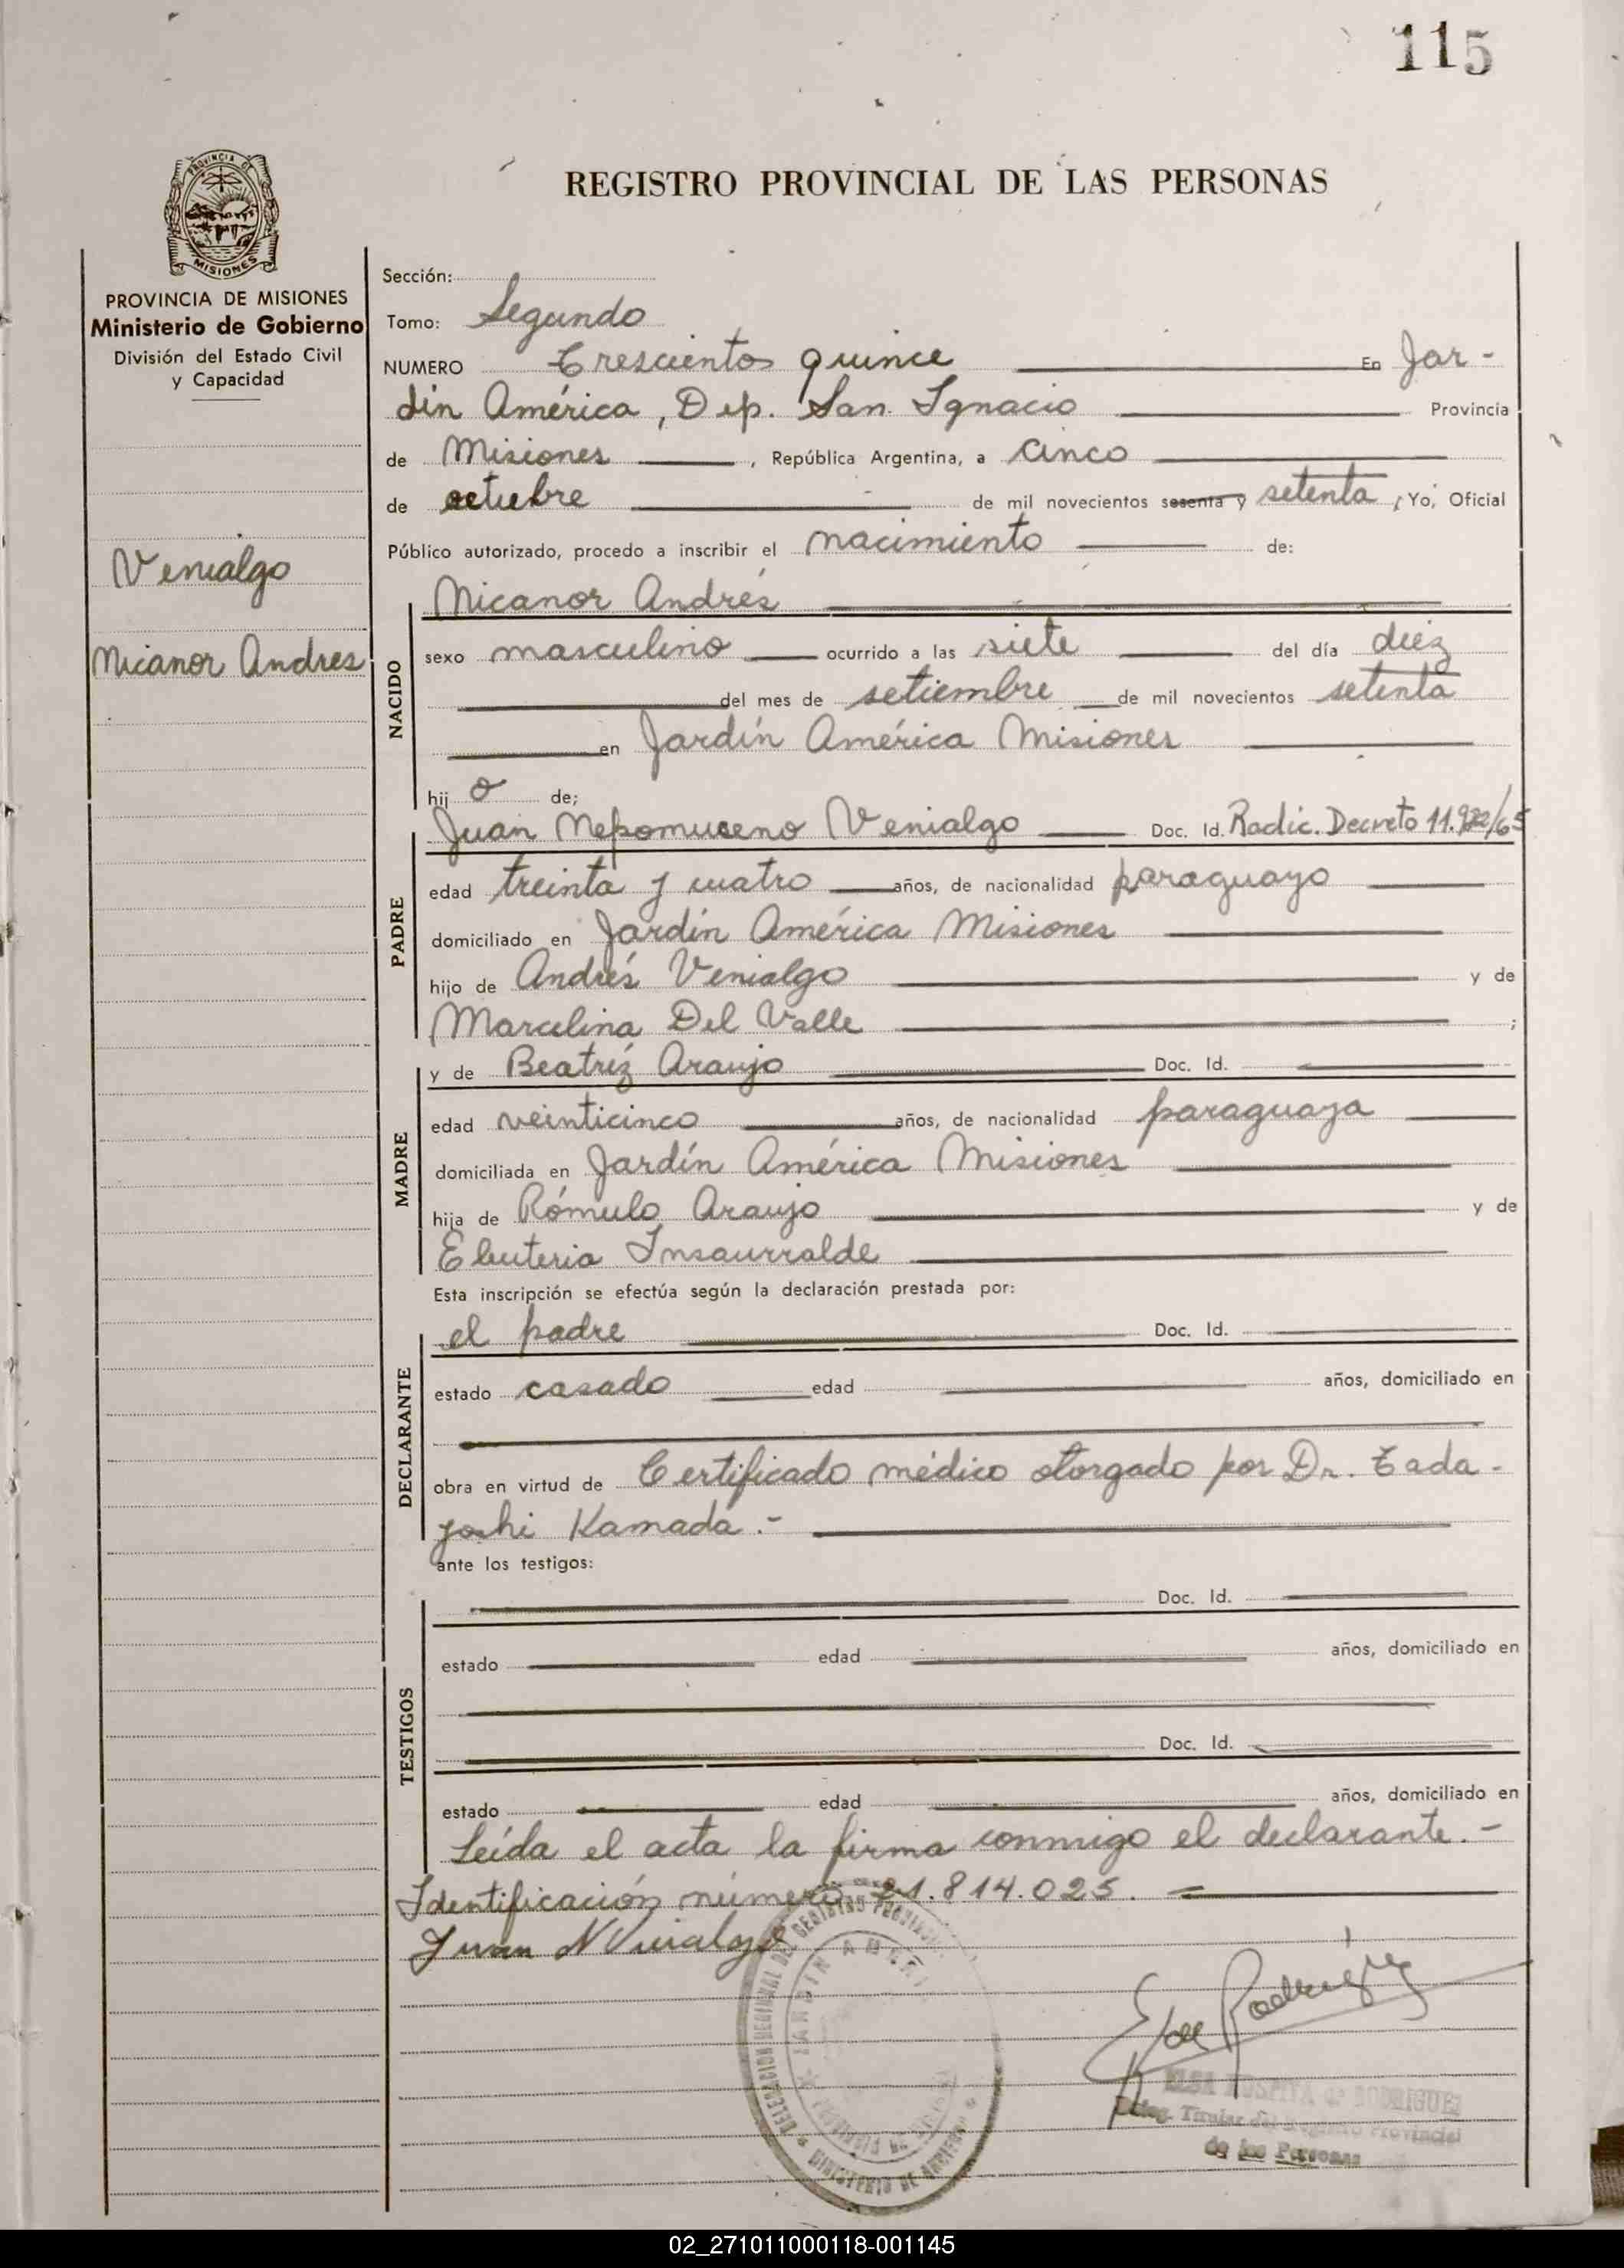 115
REGISTRO PROVINCIAL DE LAS PERSONAS
PROVINCIA DE
MISIONES
PROVINCIA DE MISIONES
Ministerio de Gobierno
División del Estado Civil
y Capacidad
Venialgo
Nicanor Andres
Sección:
Tomo: Segundo
NUMERO Trescientos quince En Jar-
dín América, Dep. San Ignacio Provincia
de Misiones, República Argentina, a cinco
de octubre de mil novecientos sesenta y setenta, Yo, Oficial
Público autorizado, procedo a inscribir el nacimiento de:
Nicanor Andrés
NACIDO
sexo masculino ocurrido a las siete del día diez
del mes de setiembre de mil novecientos setenta
en Jardín América Misiones
hij o de;
PADRE
Juan Nepomuceno Venialgo Doc. Id. Radic. Decreto
edad treinta y cuatro años, de nacionalidad paraguayo
domiciliado en Jardín América Misiones
hijo de Andrés Venialgo y de
Marcelina Del Valle ;
MADRE
y de Beatríz Araujo Doc. Id.
edad veinticinco años, de nacionalidad paraguaya
domiciliada en Jardín América Misiones
hija de Rómulo Araujo y de
Eleuteria Insaurralde
Esta inscripción se efectúa según la declaración prestada por:
DECLARANTE
el padre Doc. Id.
estado casado edad años, domiciliado en
obra en virtud de Certificado médico otorgado por Dr. Tada-
yoshi Kamada.-
ante los testigos:
TESTIGOS
Doc. Id.
estado edad años, domiciliado en
Doc. Id.
estado edad años, domiciliado en
Leída el acta la firma conmigo el declarante.-
Identificación número 21.814.025.
Juan N Venialgo
DELEGACION REGISTRO
JARDIN AMERICA
MINISTERIO DE GOBIERNO
Rodriguez
ELSA de RODRIGUEZ
Deleg. Titular del Registro Provincial
de las Personas
02_271011000118-001145